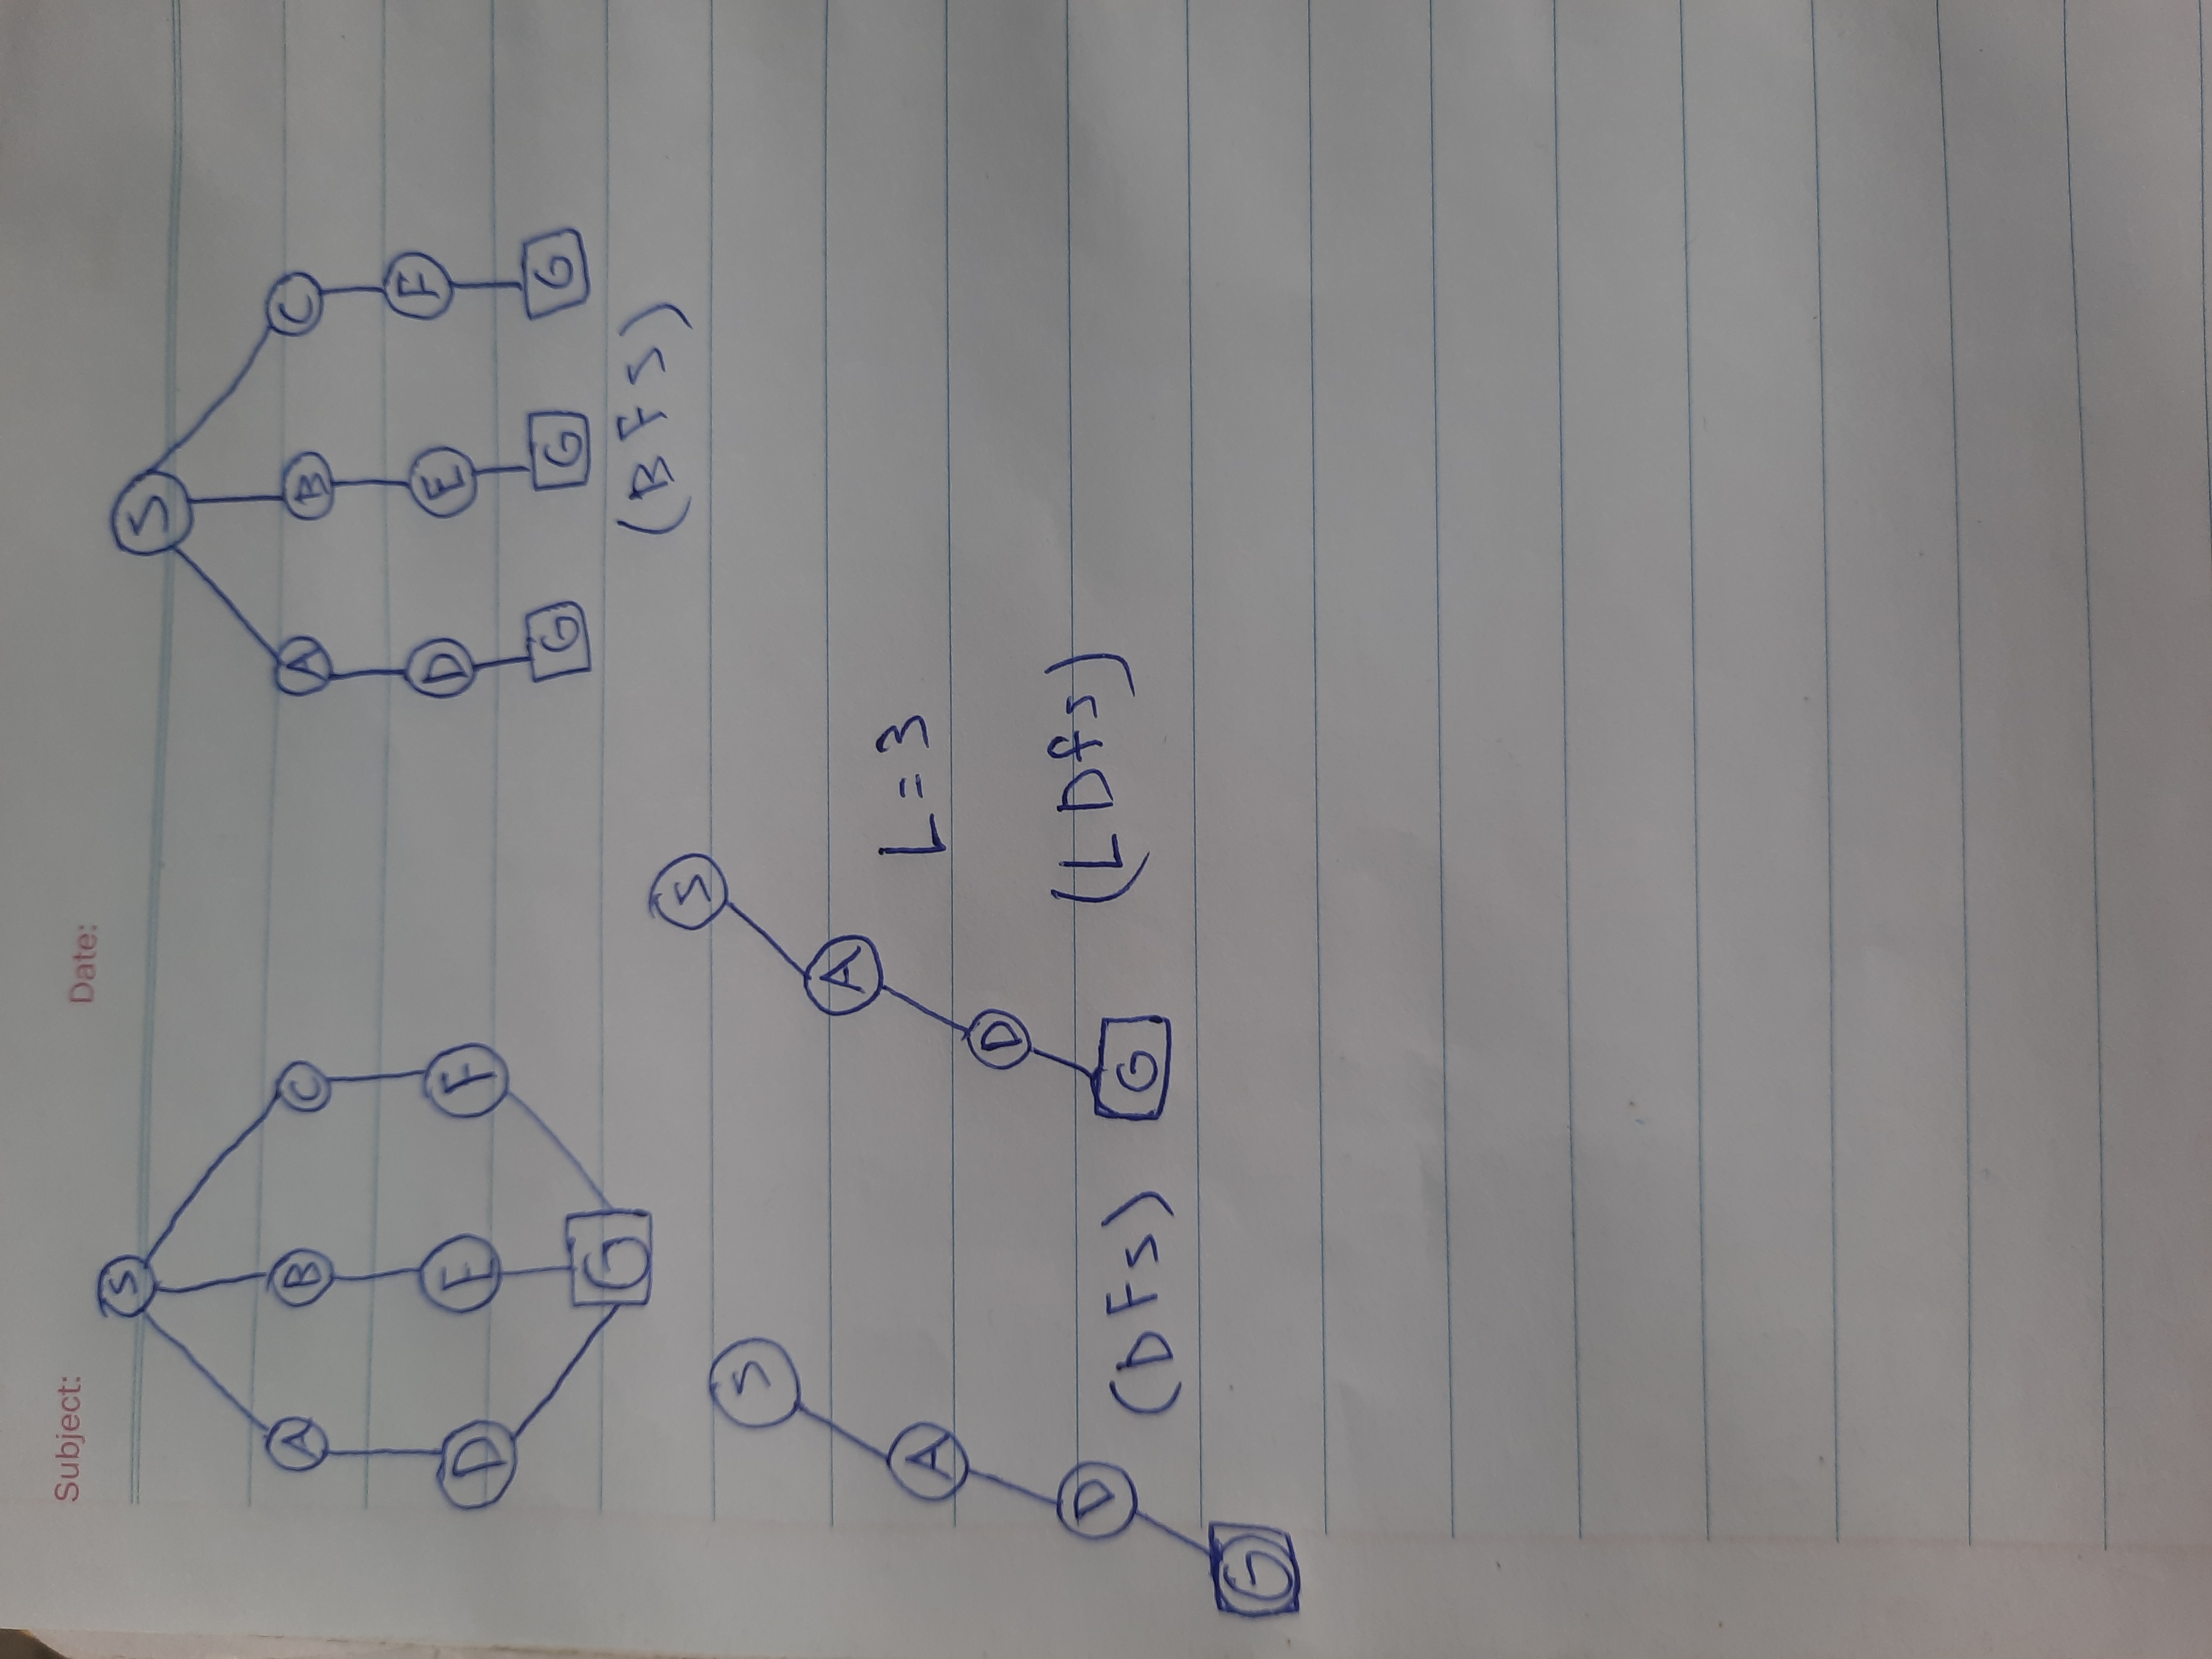 Subject: Date:
S
A B C
D E F
G
S
A B C
D E F
G G G
(BFS)
S
A
D
G
(DFs)
S
A
D
G
L=3
(LDfs)